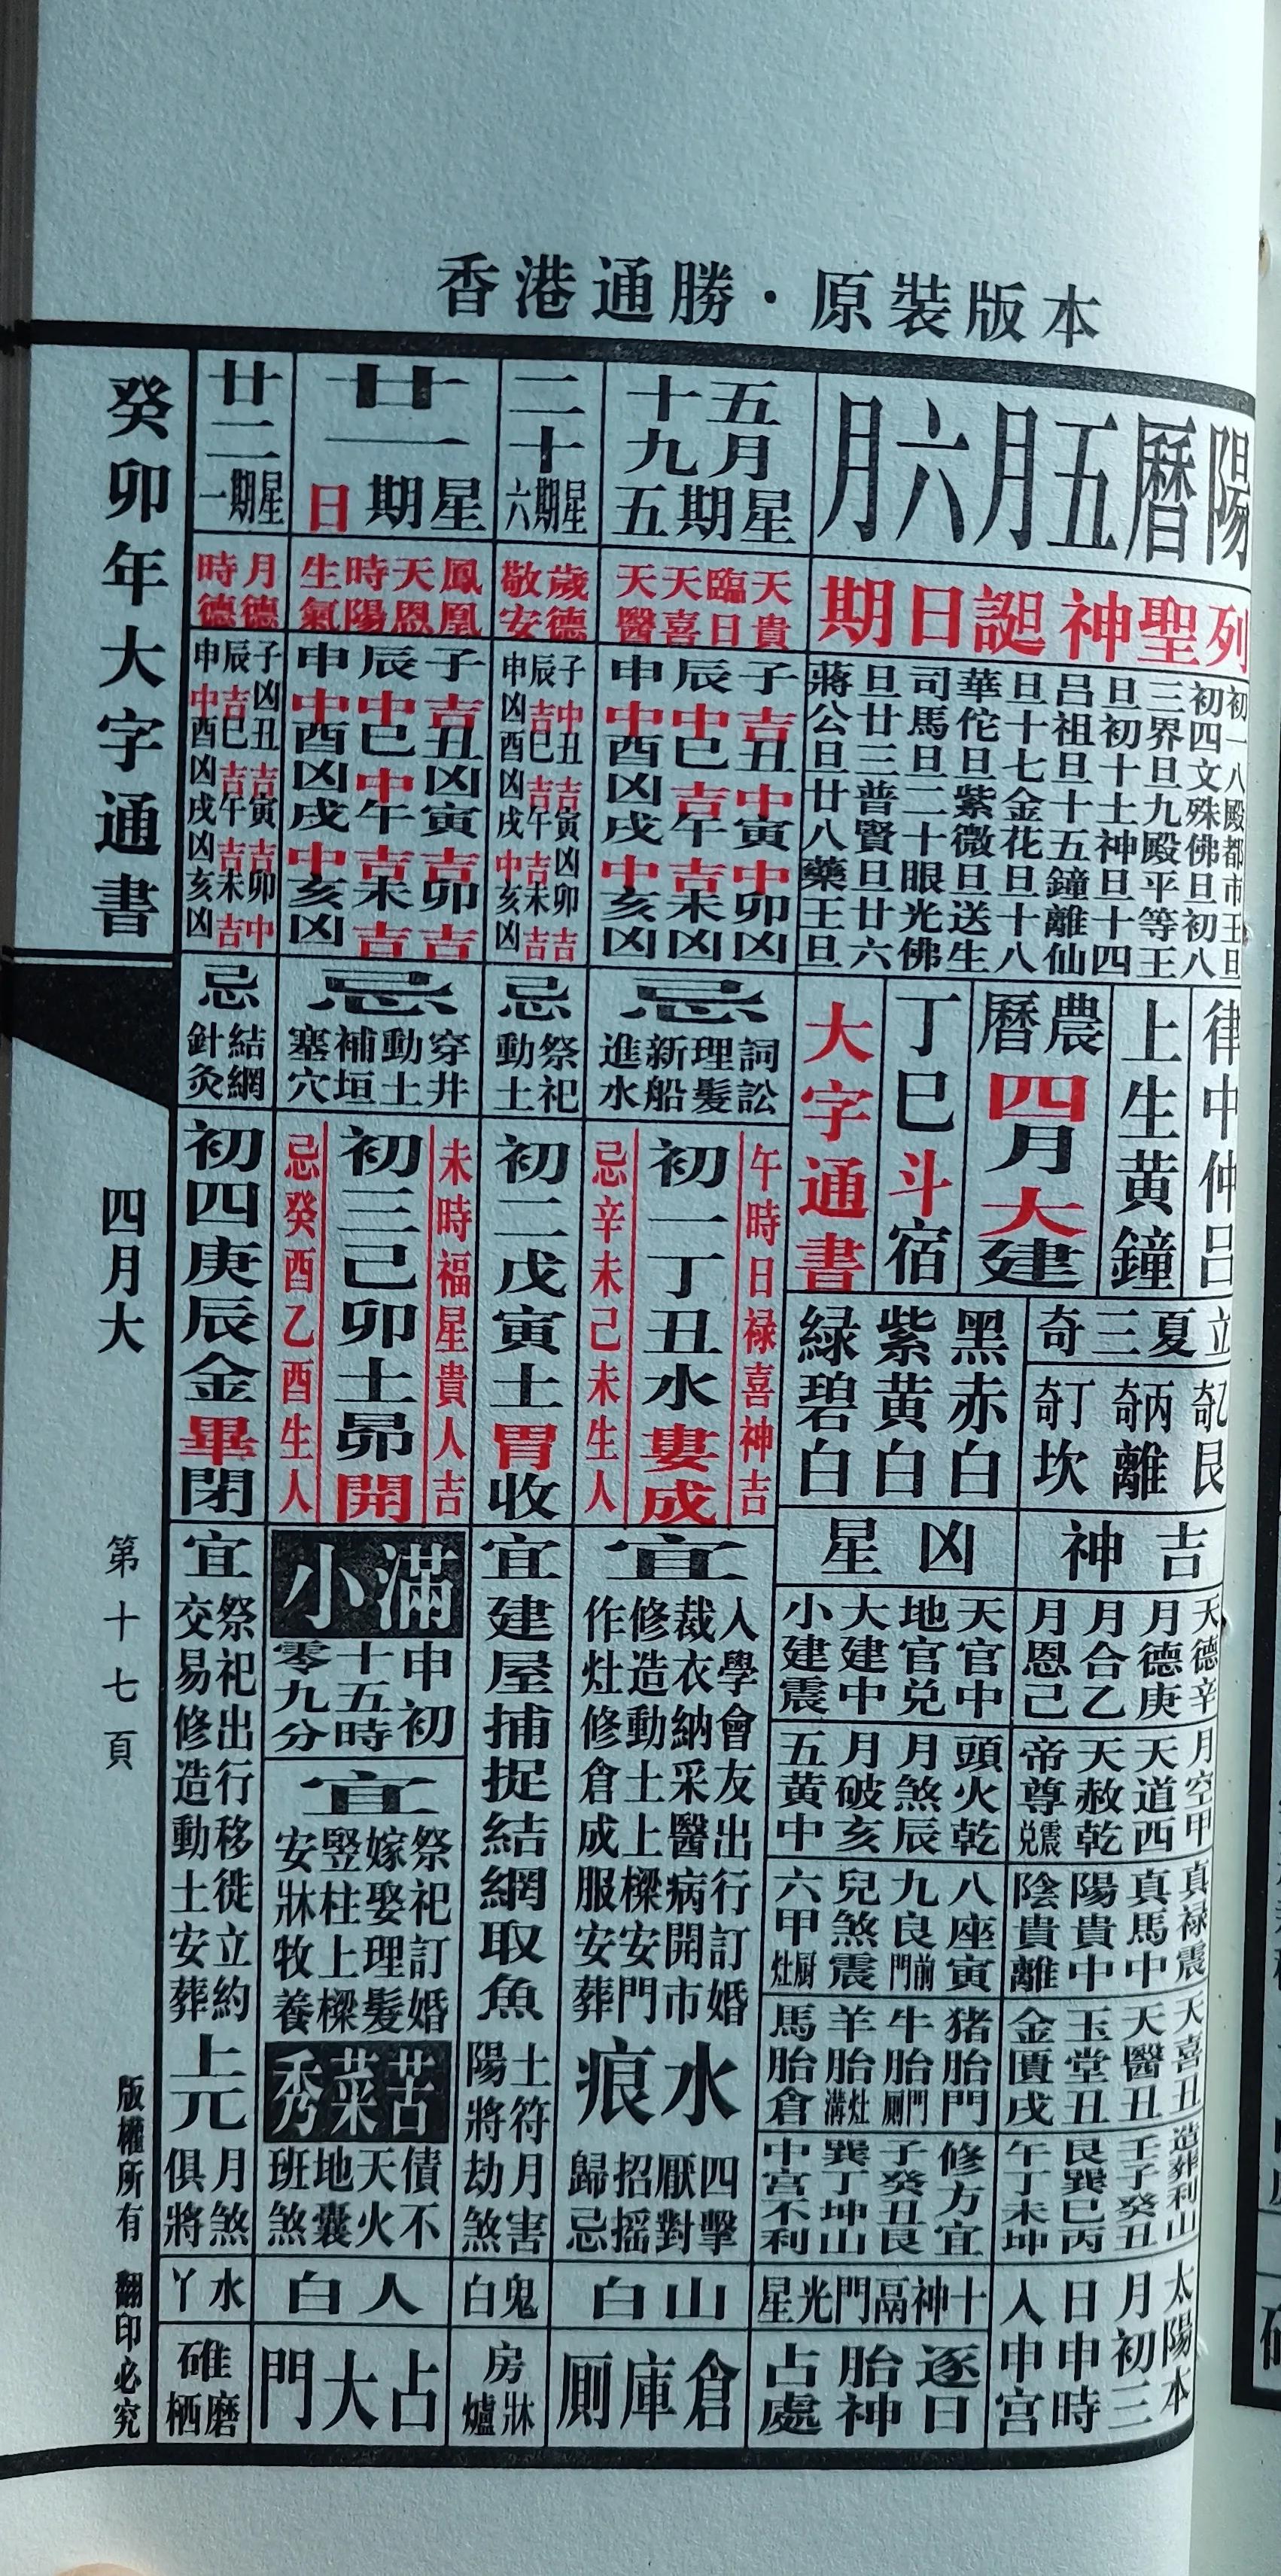 香港通勝·原裝版本
陽曆五月六月
列聖神誕日期
初一八殿都市王旦
初四文殊佛旦初八
三界旦九殿平等王
旦初十土神旦十四
呂祖旦十五鐘離仙
旦十七金花旦十八
華佗旦紫微旦送生
司馬旦二十眼光佛
旦廿三普賢旦廿六
蔣公旦廿八藥王旦
律中仲呂
上生黃鐘
農曆四月大建
丁巳斗宿
大字通書
立夏三奇
乙奇艮
丙奇離
丁奇坎
黑赤白
紫黃白
綠碧白
吉神
天德辛
月德庚
月合乙
月恩己
月空甲
天道西
天赦乾
帝尊震兌
真祿震
真馬中
陽貴中
陰貴離
天喜丑
天醫丑
玉堂丑
金匱戌
造葬利山
壬子癸丑
艮巽巳丙
午丁未坤
凶星
天官中
地官兌
大建中
小建震
頭火乾
月煞辰
月破亥
五黃中
八座寅
九良門前
兒煞震
六甲厨灶
猪胎門
牛胎門厠
羊胎灶溝
馬胎倉
修方宜
子癸丑艮
巽丁坤山
中宮不利
太陽本
月初三
日申時
入申宮
十神鬲門光星
逐日胎神占處
五月十九
星期五
天貴 臨日 天喜 天醫
子吉丑中寅中卯凶
辰中巳吉午吉未凶
申中酉凶戌中亥凶
忌
詞訟 理髮 新船 進水
午時日祿喜神吉
初一丁丑水婁成
忌辛未己未生人
宜
入學會友出行訂婚
裁衣納采醫病開市
修造動土上樑安門
作灶修倉成服安葬
水痕
四擊 厭對 招搖 歸忌
山白
倉庫厠
二十
星期六
歲德 敬安
子中丑吉寅凶卯吉
辰吉巳吉午吉未吉
申凶酉凶戌中亥凶
忌
祭祀 動土
初二戊寅土胃收
宜
建屋捕捉結網取魚
土符 陽將
月害 劫煞
鬼白
房牀爐
廿一
星期日
鳳凰 天恩 時陽 生氣
子吉丑凶寅吉卯吉
辰中巳中午吉未吉
申中酉凶戌中亥凶
忌
穿井 動土 補垣 塞穴
未時福星貴人吉
初三己卯土昴開
忌癸酉乙酉生人
小滿
申初
十五時
零九分
宜
祭祀訂婚
嫁娶理髮
竪柱上樑
安牀牧養
苦菜秀
債不 天火 地囊 班煞
人白
占大門
廿二
星期一
月德 時德
子凶丑吉寅吉卯中
辰吉巳吉午吉未吉
申中酉凶戌凶亥凶
忌
結網 針灸
初四庚辰金畢閉
宜
祭祀出行移徙立約
交易修造動土安葬
上兀
月煞 俱將
水丫
碓磨栖
癸卯年大字通書
四月大
第十七頁
版權所有 翻印必究